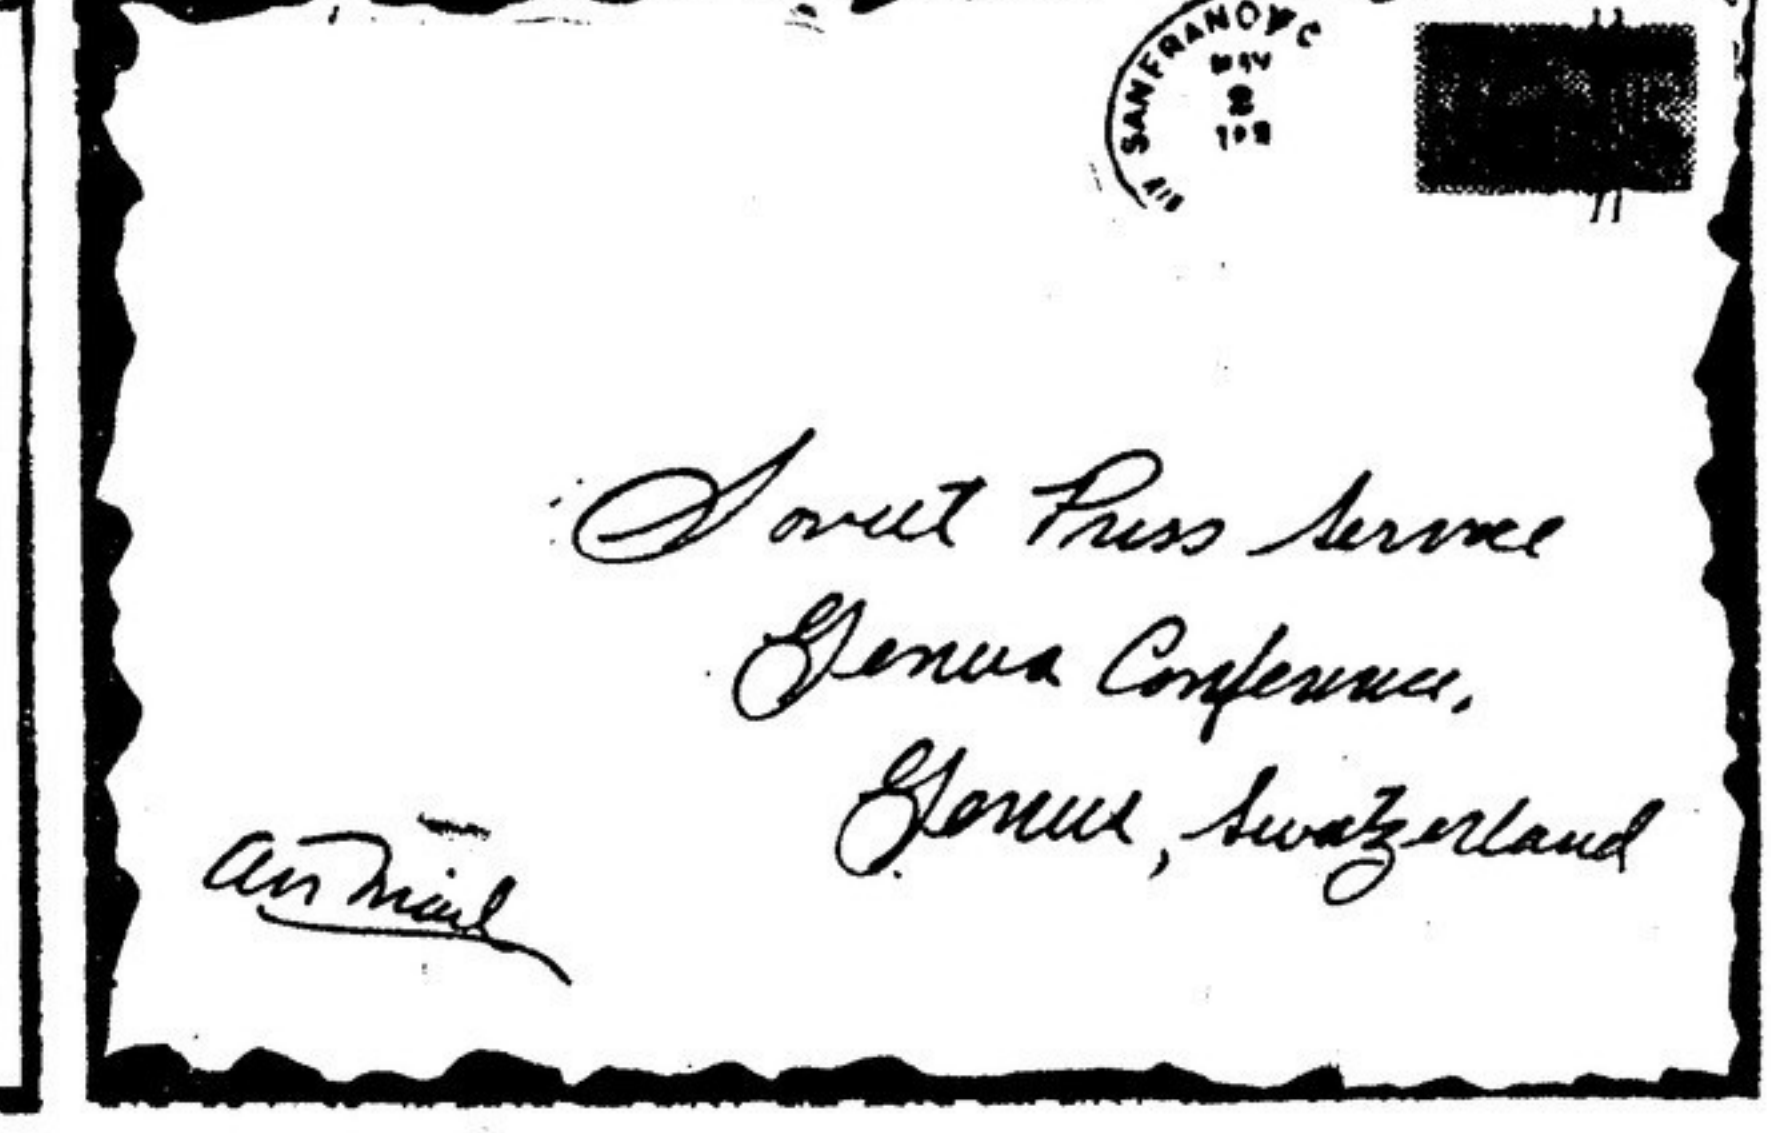 SAN FRANC
2
Soviet Press Service
Geneva Conference,
Geneva, Switzerland
Air Mail